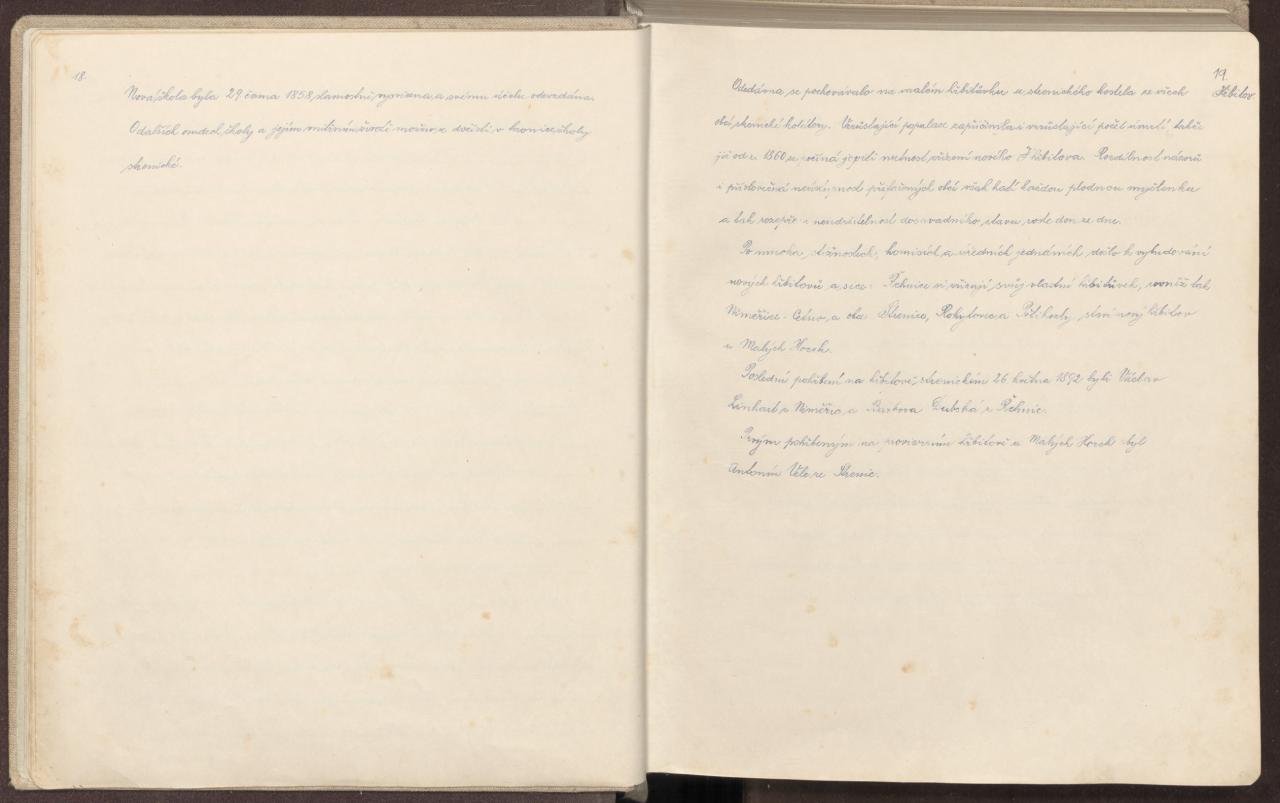 18.
Nová škola byla 29 června 1858 slavnostně vysvěcena a svému účelu odevzdána.
O dalších osudech školy a jejím vnitřním životě možno se dočísti v kronice školy
strenické.
19.
Hřbitov.
Odedávna se pochovávalo na malém hřbitůvku u strenického kostela ze všech
obcí strenické kolátury. Vzrůstající populace zapříčinila i vzrůstající počet úmrtí, takže
již od r. 1860 se počíná jeviti nutnost zřízení nového hřbitova. Rozdílnost názorů
i příslovečná neústupnost přifařených obcí však hatí každou plodnou myšlenku
a tak rozepře i neudržitelnost dosavadního stavu roste den ze dne.
Po mnoha stížnostech, komisích a úředních jednáních došlo k vybudování
nových hřbitovů a sice: Řehnice si zřizují svůj vlastní hřbitůvek, rovněž tak
Niměřice - Cetno, a obce Strenice, Rokytovec a Pětikozly staví nový hřbitov
u Malých Horek.
Poslední pohřbení na hřbitově strenickém 26 května 1892 byli Václav
Linhart z Niměřic a Barbora Dubská z Řehnic.
Prvým pohřbeným na provisorním hřbitově u Malých Horek byl
Antonín Vele ze Strenic.